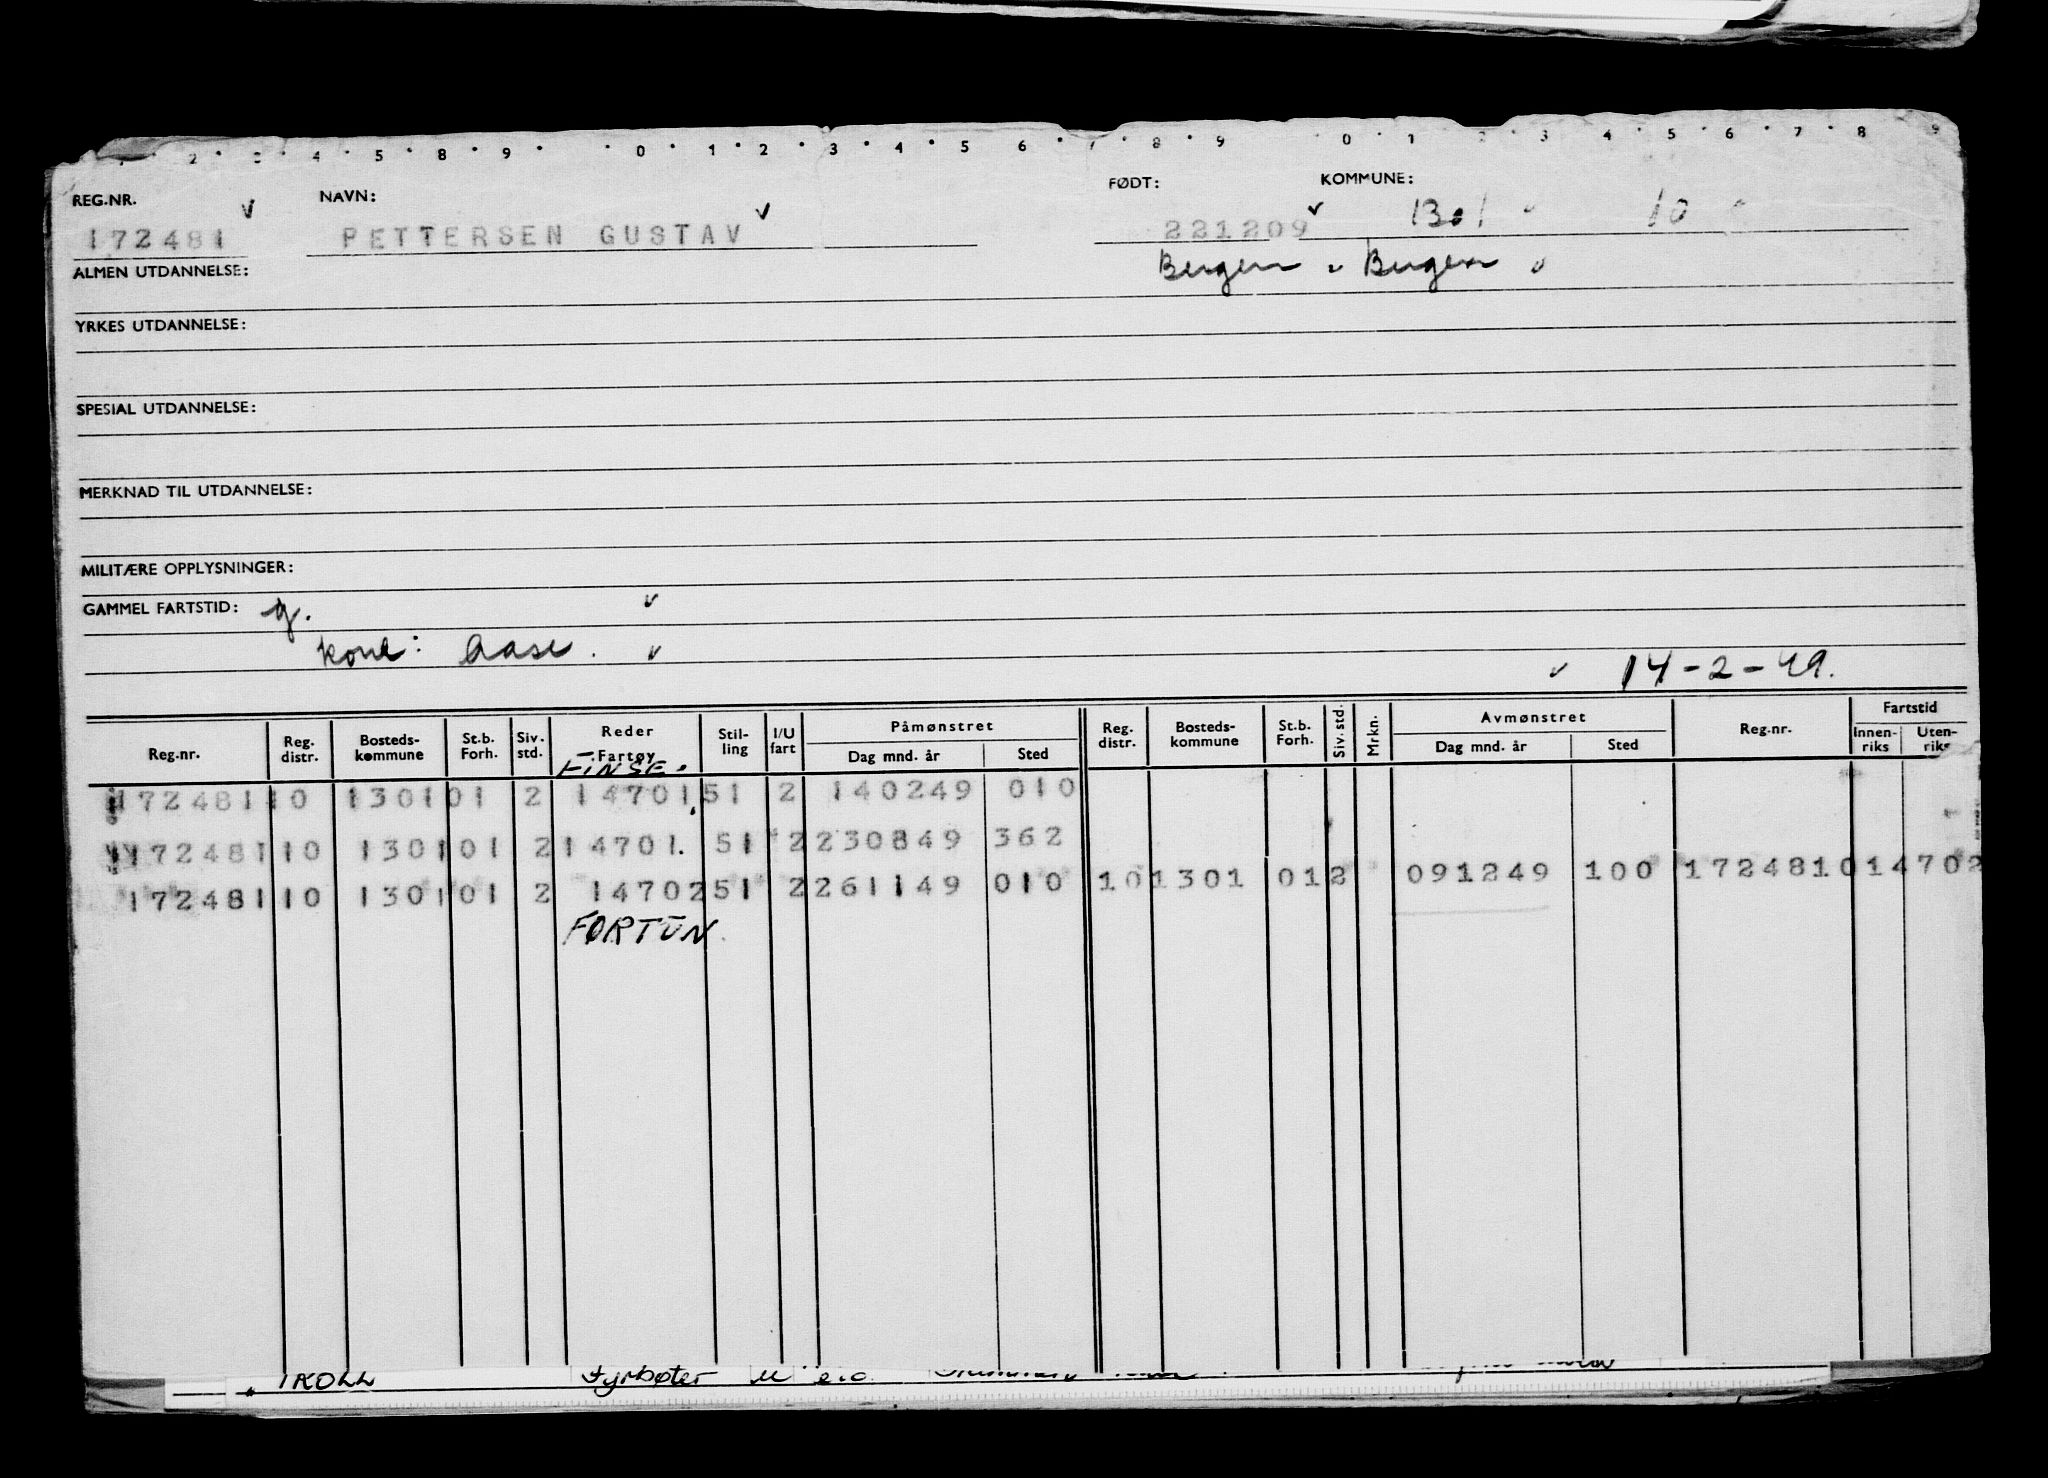 1 · 2 · 3 · 4 · 5 · 8 · 9 · · 0 · 1 · 2 · 3 · 4 · 5 · 6 · 7 · 8 · 9 0 · 1 · 2 · 3 · 4 · 5 · 6 · 7 · 8 · 9
REG.NR. NAVN: FØDT: KOMMUNE:
172481 PETTERSEN GUSTAV 221209 1301 10
ALMEN UTDANNELSE: Bergen Bergen
YRKES UTDANNELSE:
SPESIAL UTDANNELSE:
MERKNAD TIL UTDANNELSE:
MILITÆRE OPPLYSNINGER:
GAMMEL FARTSTID: g.
kone: Aase.
14-2-49.
Reg.nr. Reg. distr. Bosteds-kommune St.b. Forh. Siv. std. Reder Fartøy Stil-ling I/U fart Påmønstret Dag mnd. år Sted Reg. distr. Bosteds-kommune St.b. Forh. Siv. std. Mrkn. Avmønstret Dag mnd. år Sted Reg.nr. Fartstid Innen-riks Uten-riks
FINSE.
172481 10 1301 01 2 14701 51 2 140249 010
172481 10 1301 01 2 14701. 51 2 230849 362
172481 10 1301 01 2 14702 51 2 261149 010 10 1301 01 2 091249 100 172481 0 14702
FORTUN.
" TROLL Fyrbøter